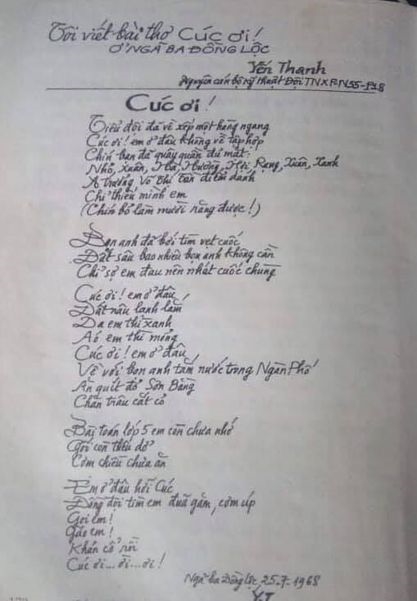 Tôi viết bài thơ Cúc ơi!
Ở NGÃ BA ĐỒNG LỘC
Yến Thanh
Nguyên cán bộ kỹ thuật Đội TNXP N55-P18
Cúc ơi!
Tiểu đội đã về xếp một hàng ngang
Cúc ơi! em ở đâu không về tập hợp
Chín bạn đã quây quần đủ mặt:
Nhỏ, Xuân, Hà, Hường, Hợi, Rạng, Xuân, Xanh
A trưởng Võ Thị Tần điểm danh
Chỉ thiếu mình em
(Chín bỏ làm mười răng được!)
Bọn anh đã bới tìm vẹt cuốc
Đất sâu bao nhiêu bọn anh không cần
Chỉ sợ em đau nên nhát cuốc chùng
Cúc ơi! em ở đâu
Đất nâu lạnh lắm
Da em thì xanh
Áo em thì mỏng
Cúc ơi! em ở đâu
Về với bọn anh tắm nước trong Ngàn Phố
Ăn quýt đỏ Sơn Bằng
Chăn trâu cắt cỏ
Bài toán lớp 5 em còn chưa nhớ
Gối còn thêu dở
Cơm chiều chưa ăn
Em ở đâu hỡi Cúc
Đồng đội tìm em đũa găm, cơm úp
Gọi em!
Gào em!
Khản cổ rồi
Cúc ơi...ơi...ơi!
Ngã ba Đồng Lộc 25.7.1968
Y.T